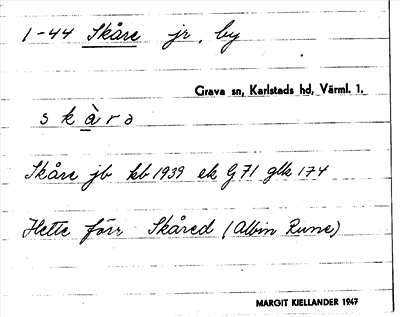 1-44 Skåre jr, by
Grava sn, Karlstads hd, Värml. 1.
s k å̀ r ə
Skåre jb kb 1939 ek G 71 glk 174
Hette förr Skåred (Albin Rune)
MARGIT KJELLANDER 1947